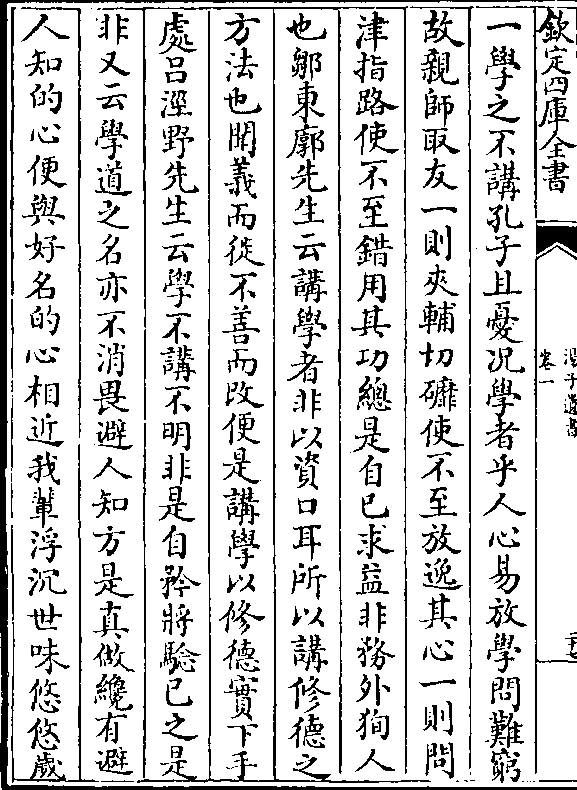 欽定四庫全書
湯子遺書
卷一
一學之不講孔子且憂况學者乎人心易放學問難窮
故親師取友一則夾輔切礳使不至放逸其心一則問
津指路使不至錯用其功總是自己求益非務外狥人
也鄒東廓先生云講學者非以資口耳所以講修德之
方法也聞義而徙不善而改便是講學以修德實下手
處吕涇野先生云學不講不明非是自矜將驗已之是
非又云學道之名亦不消畏避人知方是真做纔有避
人知的心便與好名的心相近我輩浮沉世味悠悠歲